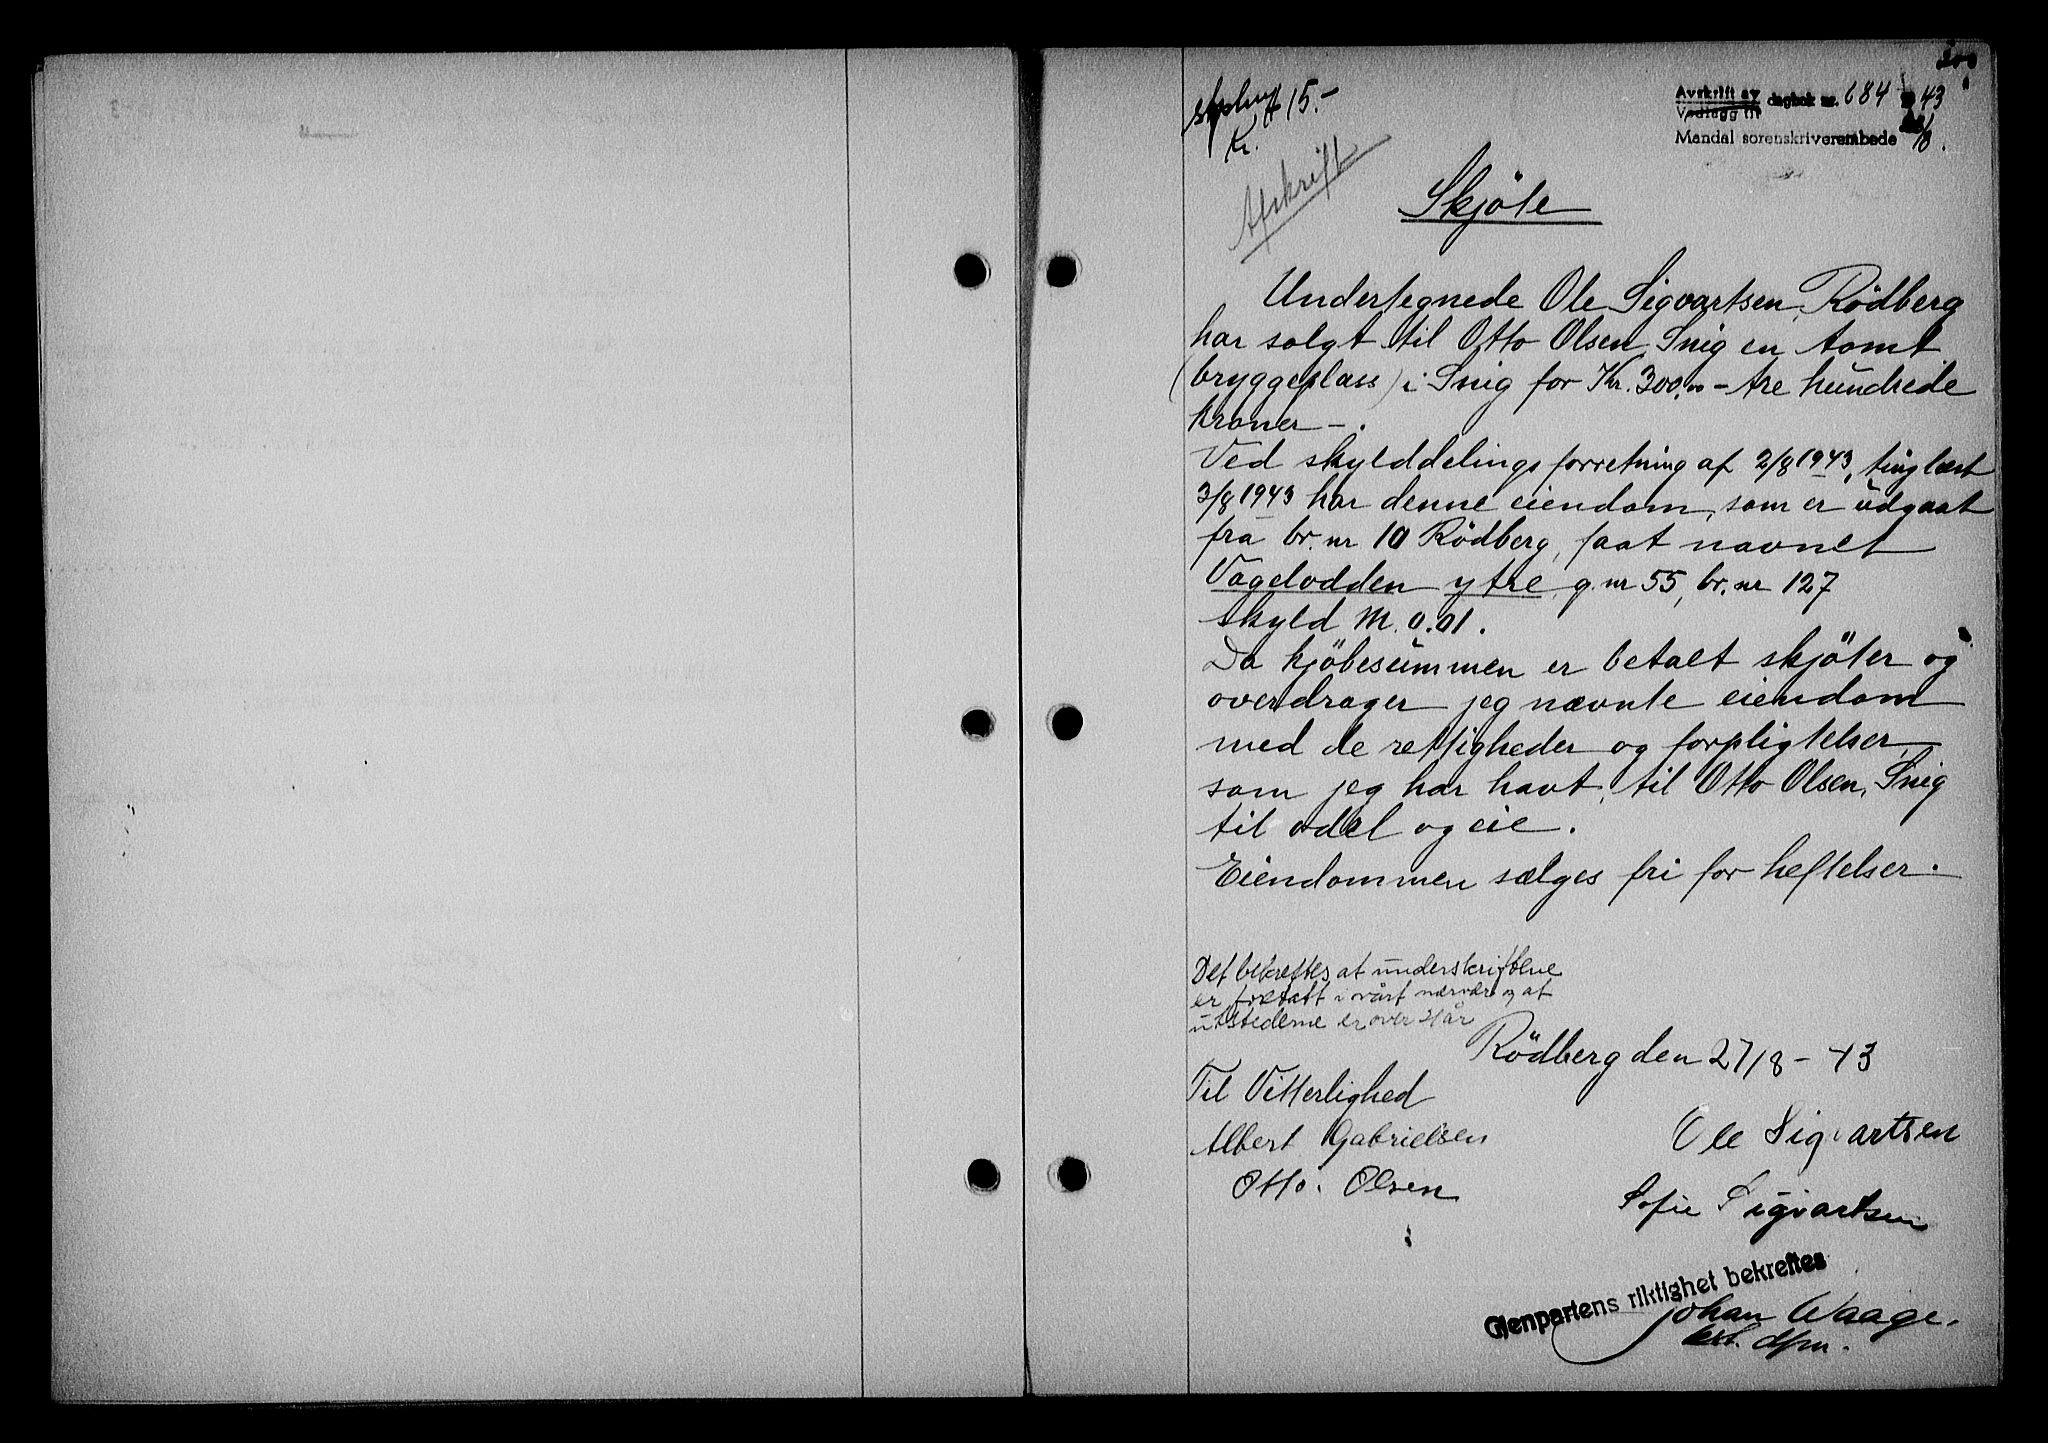 300
Avskrift av
Vedlegg til dagbok nr. 684 43
Mandal sorenskriverembede
15.-
Kr.
Afskrift
Skjöte
Undertegnede Ole Sigvartsen, Rödberg
har solgt til Otto Olsen Snig en tomt
(bryggeplass) i Snig for Kr. 300,00 - tre hundrede
kroner -.
Ved skylddelingsforretning af 2/8 1943, tinglæst
3/8 1943 har denne eiendom, som er udgaat
fra br. nr 10 Rödberg, faat navnet
Vagelodden ytre, g. nr 55, br. nr 127
skyld M. 0.01.
Da kjöbesummen er betalt skjöter og
overdrager jeg nævnte eiendom
med de rettigheder og forpligtelser
som jeg har havt, til Otto Olsen, Snig
til odel og eie.
Eiendommen sælges fri for heftelser.
Det bekreftes at underskriftene
er foretatt i vårt nærvær og at
utstederne er over 21 år
Rödberg den 27/8 - 43
Til Vitterlighed
Albert Gabrielsen
Otto Olsen
Ole Sigvartsen
Sofie Sigvartsen
Gjenpartens riktighet bekreftes
Johan Waage.